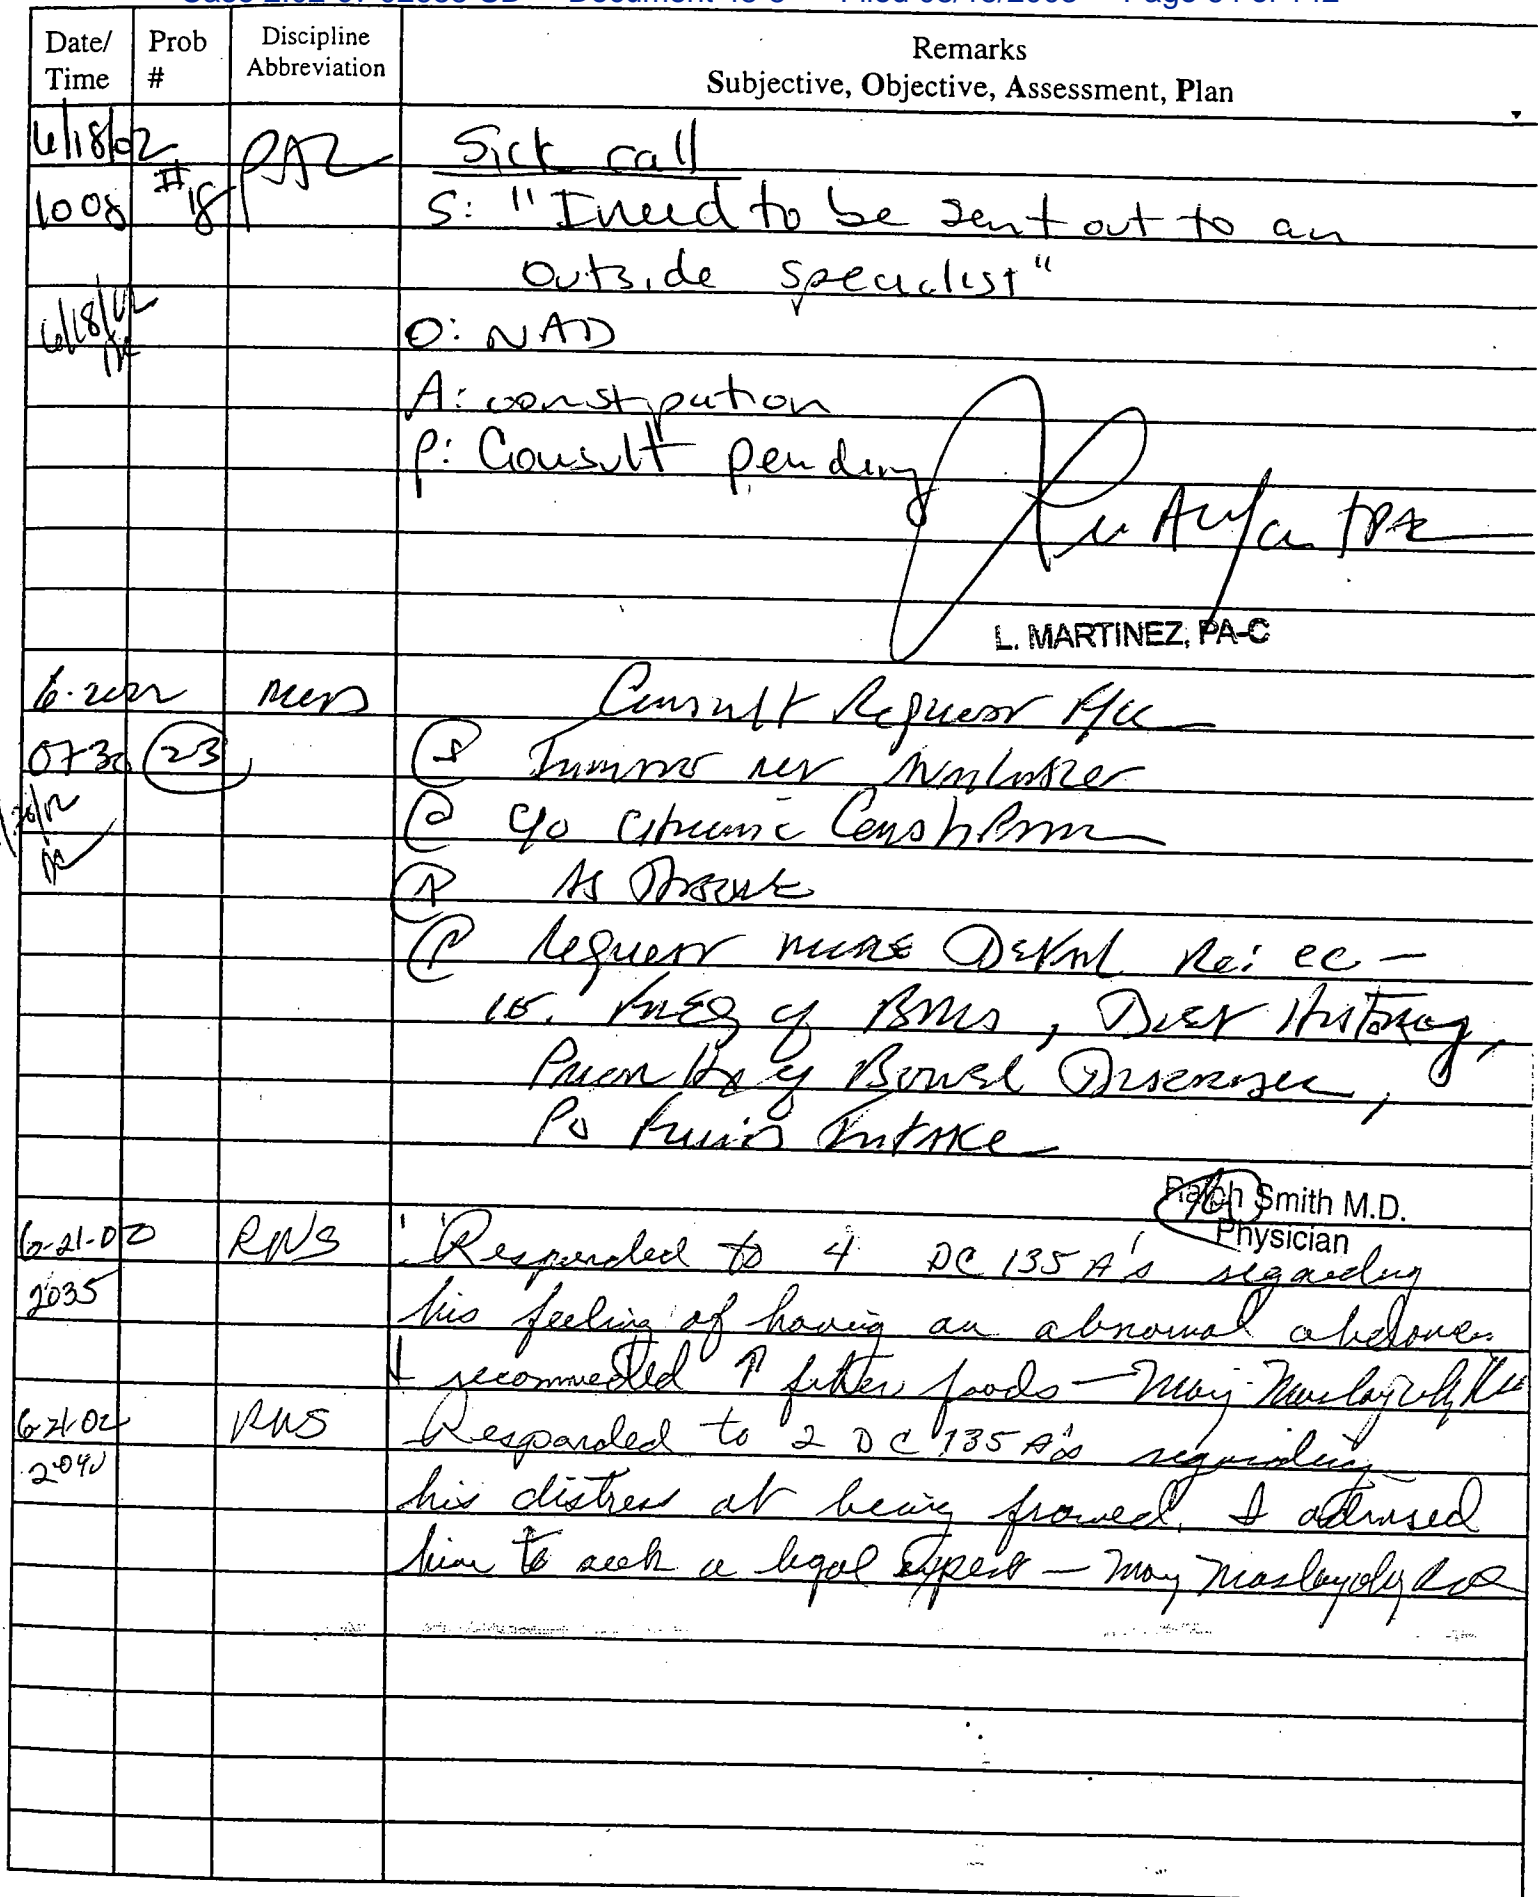 Date/ Time Prob # Discipline Abbreviation Remarks
Subjective, Objective, Assessment, Plan
6/18/02 PA2 Sick call
1008 #18 S: "I need to be sent out to an
outside specialist"
6/18/02 O: NAD
A: constipation
P: Consult pending
L. MARTINEZ, PA-C
Consult Request
0730 23 S Inmate not
O c/o chronic
A As Above
P Request more Detail Re: CC -
IE. Freq of BMs, Diet History,
Prior Hx of Bowel Diseases,
Po Fluid Intake
Ralph Smith M.D.
Physician
6-21-02 RNS Responded to 4 DC 135 A's regarding
2035 his feeling of having an abnormal abdomen
I recommended ↑ fiber foods —
6-21-02 RNS Responded to 2 DC 135 A's regarding
2040 his distress at being framed. I advised
him to seek a legal expert —